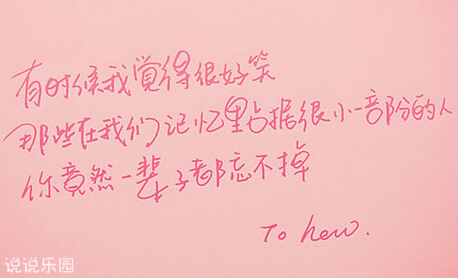 有时候我觉得很好笑
那些在我们记忆里占据很小一部分的人
你竟然一辈子都忘不掉
To hew.
说说乐园